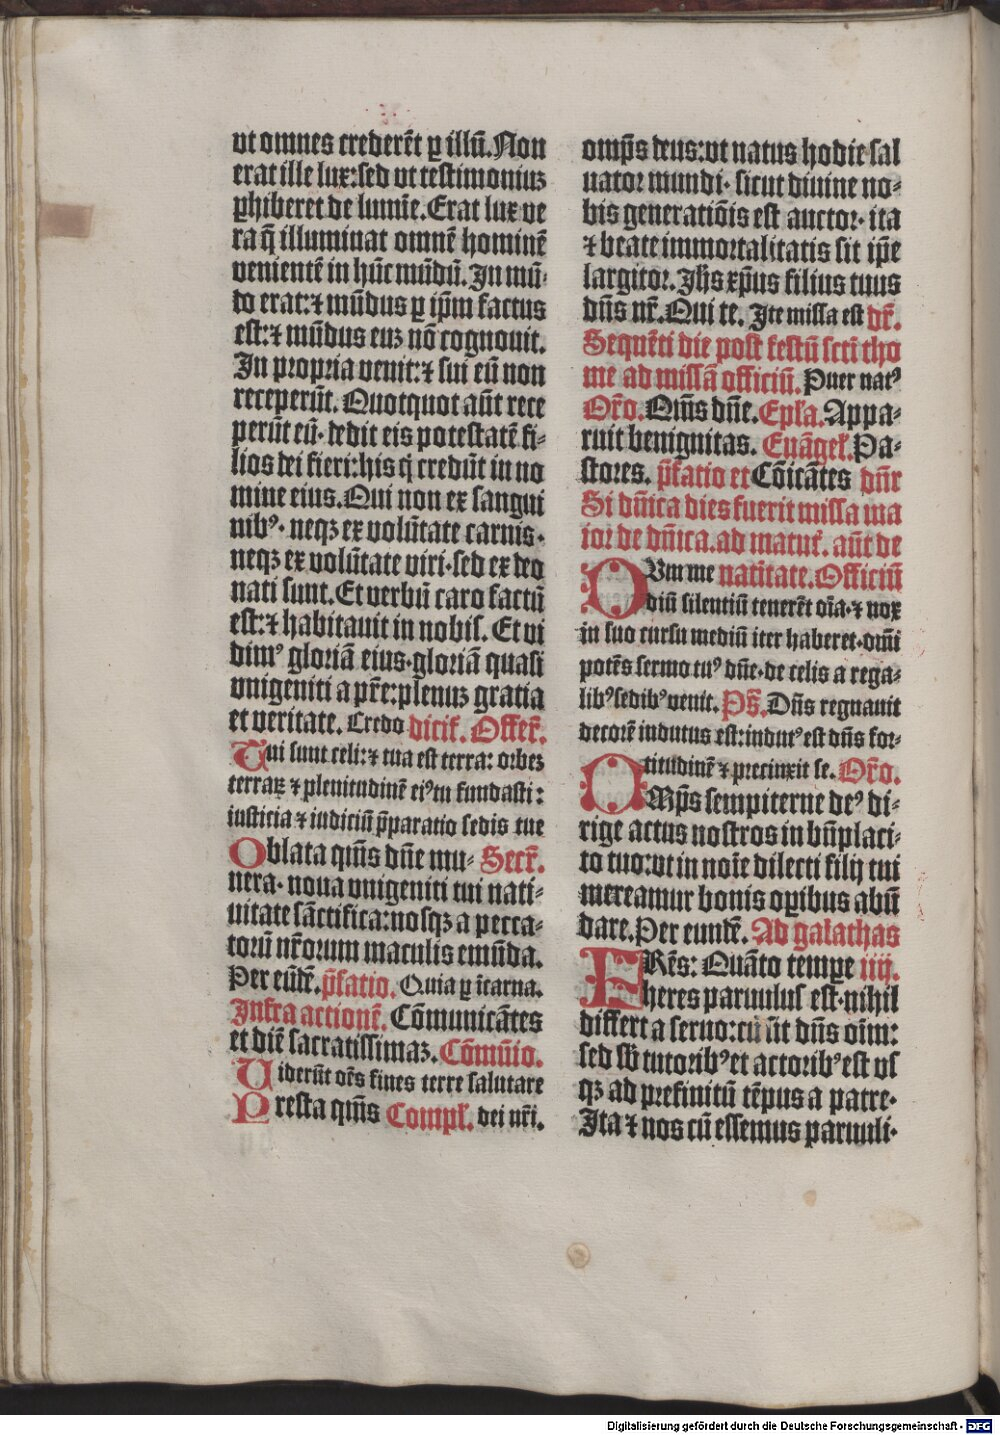 vt omnes crederēt ꝑ illū. Non
erat ille lux: sed vt testimoniuꝫ
ꝑhiberet de lumīe. Erat lux ve
ra q̄ illuminat omnē hominē
venientē in hūc mūdū. In mū-
do erat: ⁊ mūdus ꝑ ip̄m factus
est: ⁊ mūdus euꝫ nō cognouit.
In propria venit: ⁊ sui eū non
receperūt. Quotquot aūt rece
perūt eū· dedit eis potestatē fi-
lios dei fieri: his q̄ credūt in no
mine eius. Qui non ex sangui
nibꝰ· neqꝫ ex volūtate carnis·
neqꝫ ex volūtate viri· sed ex deo
nati sunt. Et verbū caro factū
est: ⁊ habitauit in nobis. Et vi
dimꝰ gloriā eius· gloriā quasi
vnigeniti a pr̄e: plenuꝫ gratia
et veritate. Credo dicit̄. Offer̄.
Tui sunt celi: ⁊ tua est terra: orbeꝫ
terraꝝ ⁊ plenitudinē eiꝰ tu fundasti:
iusticia ⁊ iudiciū p̄paratio sedis tue
Oblata q̄ms dn̄e mu- Secr̄.
nera· noua vnigeniti tui nati-
uitate sāctifica: nosqꝫ a pecca-
torū nr̄orum maculis emūda.
Per eūdē. p̄fatio. Quia ꝑ īcarna.
Infra actionē. Cōmunicātes
et diē sacratissimaꝫ. Cōmūio.
Viderūt oēs fines terre salutare
Presta q̄ms Compl̄. dei nr̄i.
omp̄s deus: vt natus hodie sal
uator mundi· sicut diuine no-
bis generatiōis est auctor· ita
⁊ beate immortalitatis sit ip̄e
largitor. Jh̄s xp̄us filius tuus
dn̄s nr̄. Qui te. Ite missa est dr̄.
Sequēti die post festū scti tho
me ad missā officiū. Puer natꝰ
Or̄o. Om̄s dn̄e. Epl̄a. Appa-
ruit benignitas. Euāgel̄. Pa-
stores. p̄fatio et Cōicātes dn̄r
Si dn̄ica dies fuerit missa ma
ior de dn̄ica. ad matur̄. aūt de
DVm me natītate. Officiū
diū silentiū tenerēt oīa· ⁊ nox
in suo cursu mediū iter haberet· om̄i
potēs sermo tuꝰ dn̄e· de celis a rega-
libꝰ sedibꝰ venit. Ps̄. Dn̄s regnauit
decorē indutus est: indutꝰ est dn̄s for-
titudinē ⁊ precinxit se. Or̄o.
OMp̄s sempiterne deꝰ di-
rige actus nostros in bn̄placi-
to tuo: vt in noīe dilecti filij tui
mereamur bonis oꝑibus abū
dare. Per eundē. Ad galathas
FRēs: Quāto tempe iiij.
heres paruulus est· nihil
differt a seruo: cū sit dn̄s oīm:
sed sb̄ tutoribꝰ et actoribꝰ est vs
qꝫ ad prefinitū tēpus a patre·
Ita ⁊ nos cū essemus paruuli·
Digitalisierung gefördert durch die Deutsche Forschungsgemeinschaft - DFG